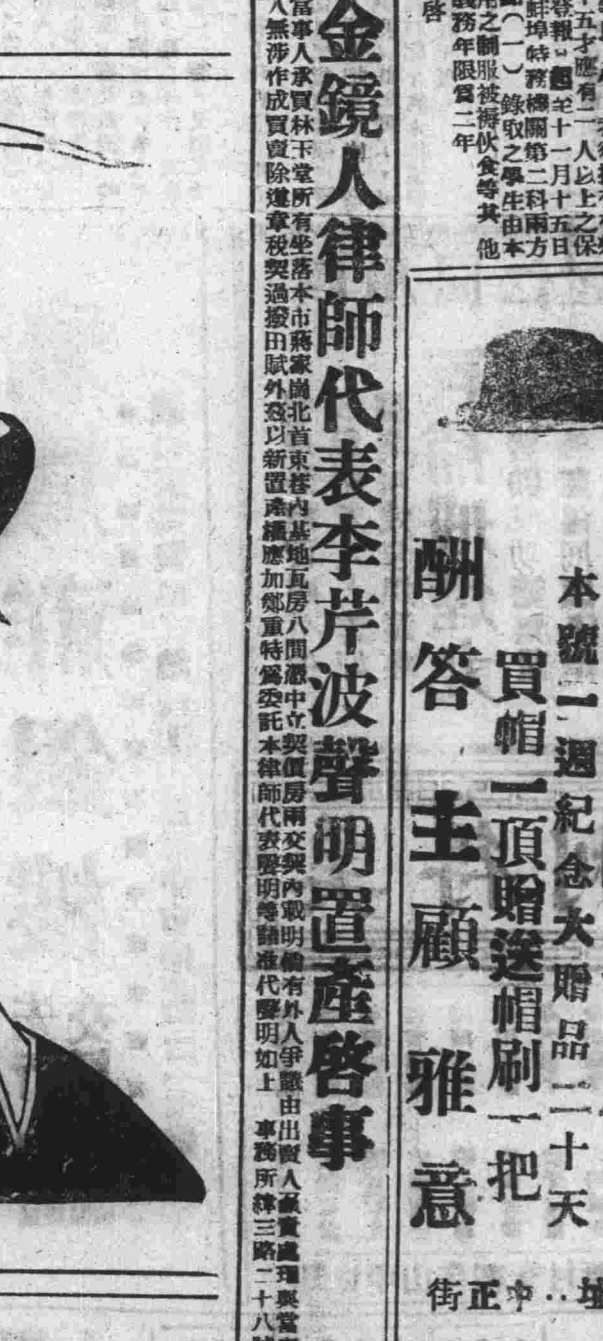 五才應有二人以上之保
登報日起至十一月十五日
蚌埠特務機關第二科兩方
(一)錄取之學生由本
之制服被褥伙食等其他
義務年限爲二年
啓
本號一週紀念大贈品二十天
買帽一頂贈送帽刷一把
酬答主顧雅意
址··中正街
金鏡人律師代表李芹波聲明置產啓事
當事人承買林玉堂所有坐落本市蔣家崗北首東巷內基地瓦房八間憑中立契價房兩交契內載明倘有外人爭議由出賣人負責處理與當
人無涉作成買賣除遵章稅契過撥田賦外茲以新置產權應加鄭重特爲委託本律師代表聲明等語准代聲明如上 事務所緯三路二十八